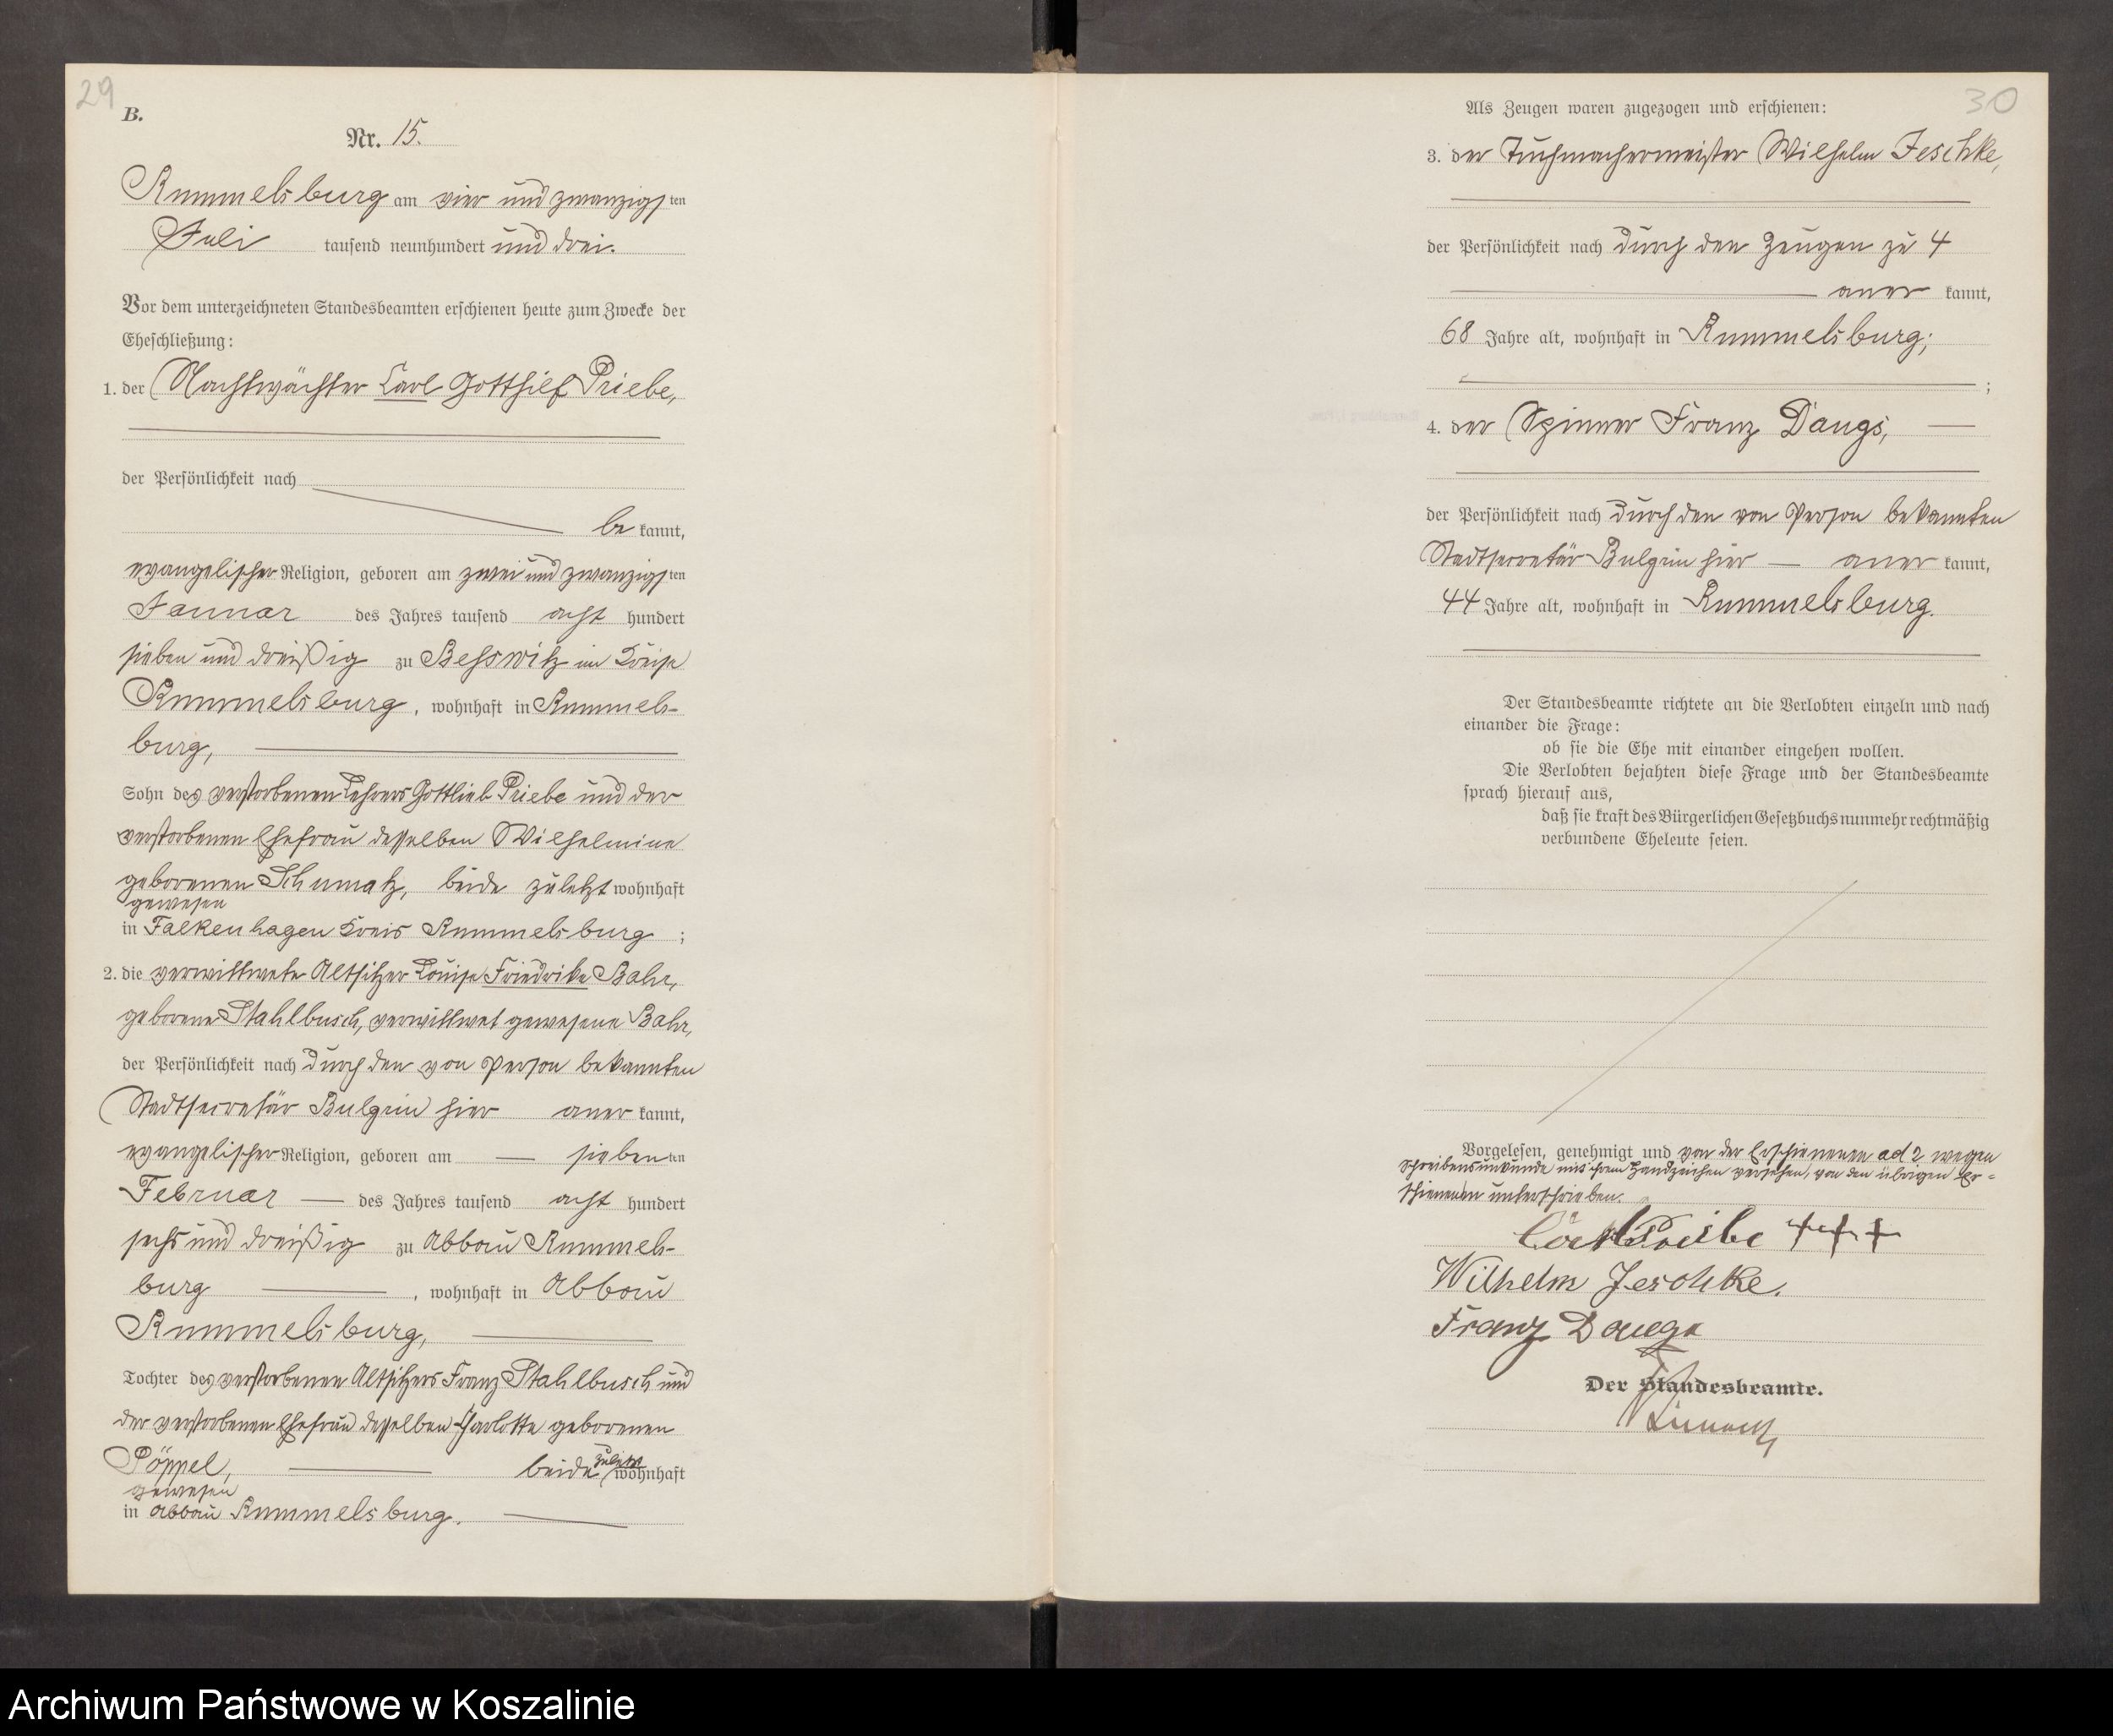 29
B.
Nr. 15.
Rummelsburg am vier und zwanzigsten
Juli tausend neunhundert und drei.
Vor dem unterzeichneten Standesbeamten erschienen heute zum Zwecke der
Eheschließung:
1. der Nachtwächter Carl Gotthilf Priebe,
der Persönlichkeit nach
be kannt,
evangelischer Religion, geboren am zwei und zwanzigsten
Januar des Jahres tausend acht hundert
sieben und dreißig zu Besswitz im Kreise
Rummelsburg, wohnhaft in Rummels-
burg,
Sohn des verstorbenen Lehrers Gottlieb Priebe und der
verstorbenen Ehefrau desselben Wilhelmine
geborenen Schumatz, beide zuletzt wohnhaft
gewesen
in Falkenhagen Kreis Rummelsburg ;
2. die verwittwete Altsitzer Louise Friedrike Bahr,
geborene Stahlbusch, verwittwet gewesene Bahr,
der Persönlichkeit nach durch den von Person bekannten
Stadtsecretär Bulgrin hier aner kannt,
evangelischer Religion, geboren am — siebenten
Februar — des Jahres tausend acht hundert
sechs und dreißig zu Abbau Rummels-
burg , wohnhaft in Abbau
Rummelsburg,
Tochter des verstorbenen Altsitzers Franz Stahlbusch und
der verstorbenen Ehefrau desselben Charlotte geborenen
Pöppel, beide zuletzt wohnhaft
gewesen
in Abbau Rummelsburg.
30
Als Zeugen waren zugezogen und erschienen:
3. der Tuchmachermeister Wilhelm Jeschke,
der Persönlichkeit nach durch den Zeugen zu 4
aner kannt,
68 Jahre alt, wohnhaft in Rummelsburg;
;
4. der Spinner Franz Dangs, —
der Persönlichkeit nach durch den von Person bekannten
Stadtsecretär Bulgrin hier — aner kannt,
44 Jahre alt, wohnhaft in Rummelsburg.
Der Standesbeamte richtete an die Verlobten einzeln und nach
einander die Frage:
ob sie die Ehe mit einander eingehen wollen.
Die Verlobten bejahten diese Frage und der Standesbeamte
sprach hierauf aus,
daß sie kraft des Bürgerlichen Gesetzbuchs nunmehr rechtmäßig
verbundene Eheleute seien.
Vorgelesen, genehmigt und von der Erschienenen ad 2 wegen
Schreibensunkunde mit ihrem Handzeichen versehen, von den übrigen Er-
schienenen unterschrieben.
Carl Priebe +++
Wilhelm Jeschke.
Franz Dangs
Der Standesbeamte.
Archiwum Państwowe w Koszalinie